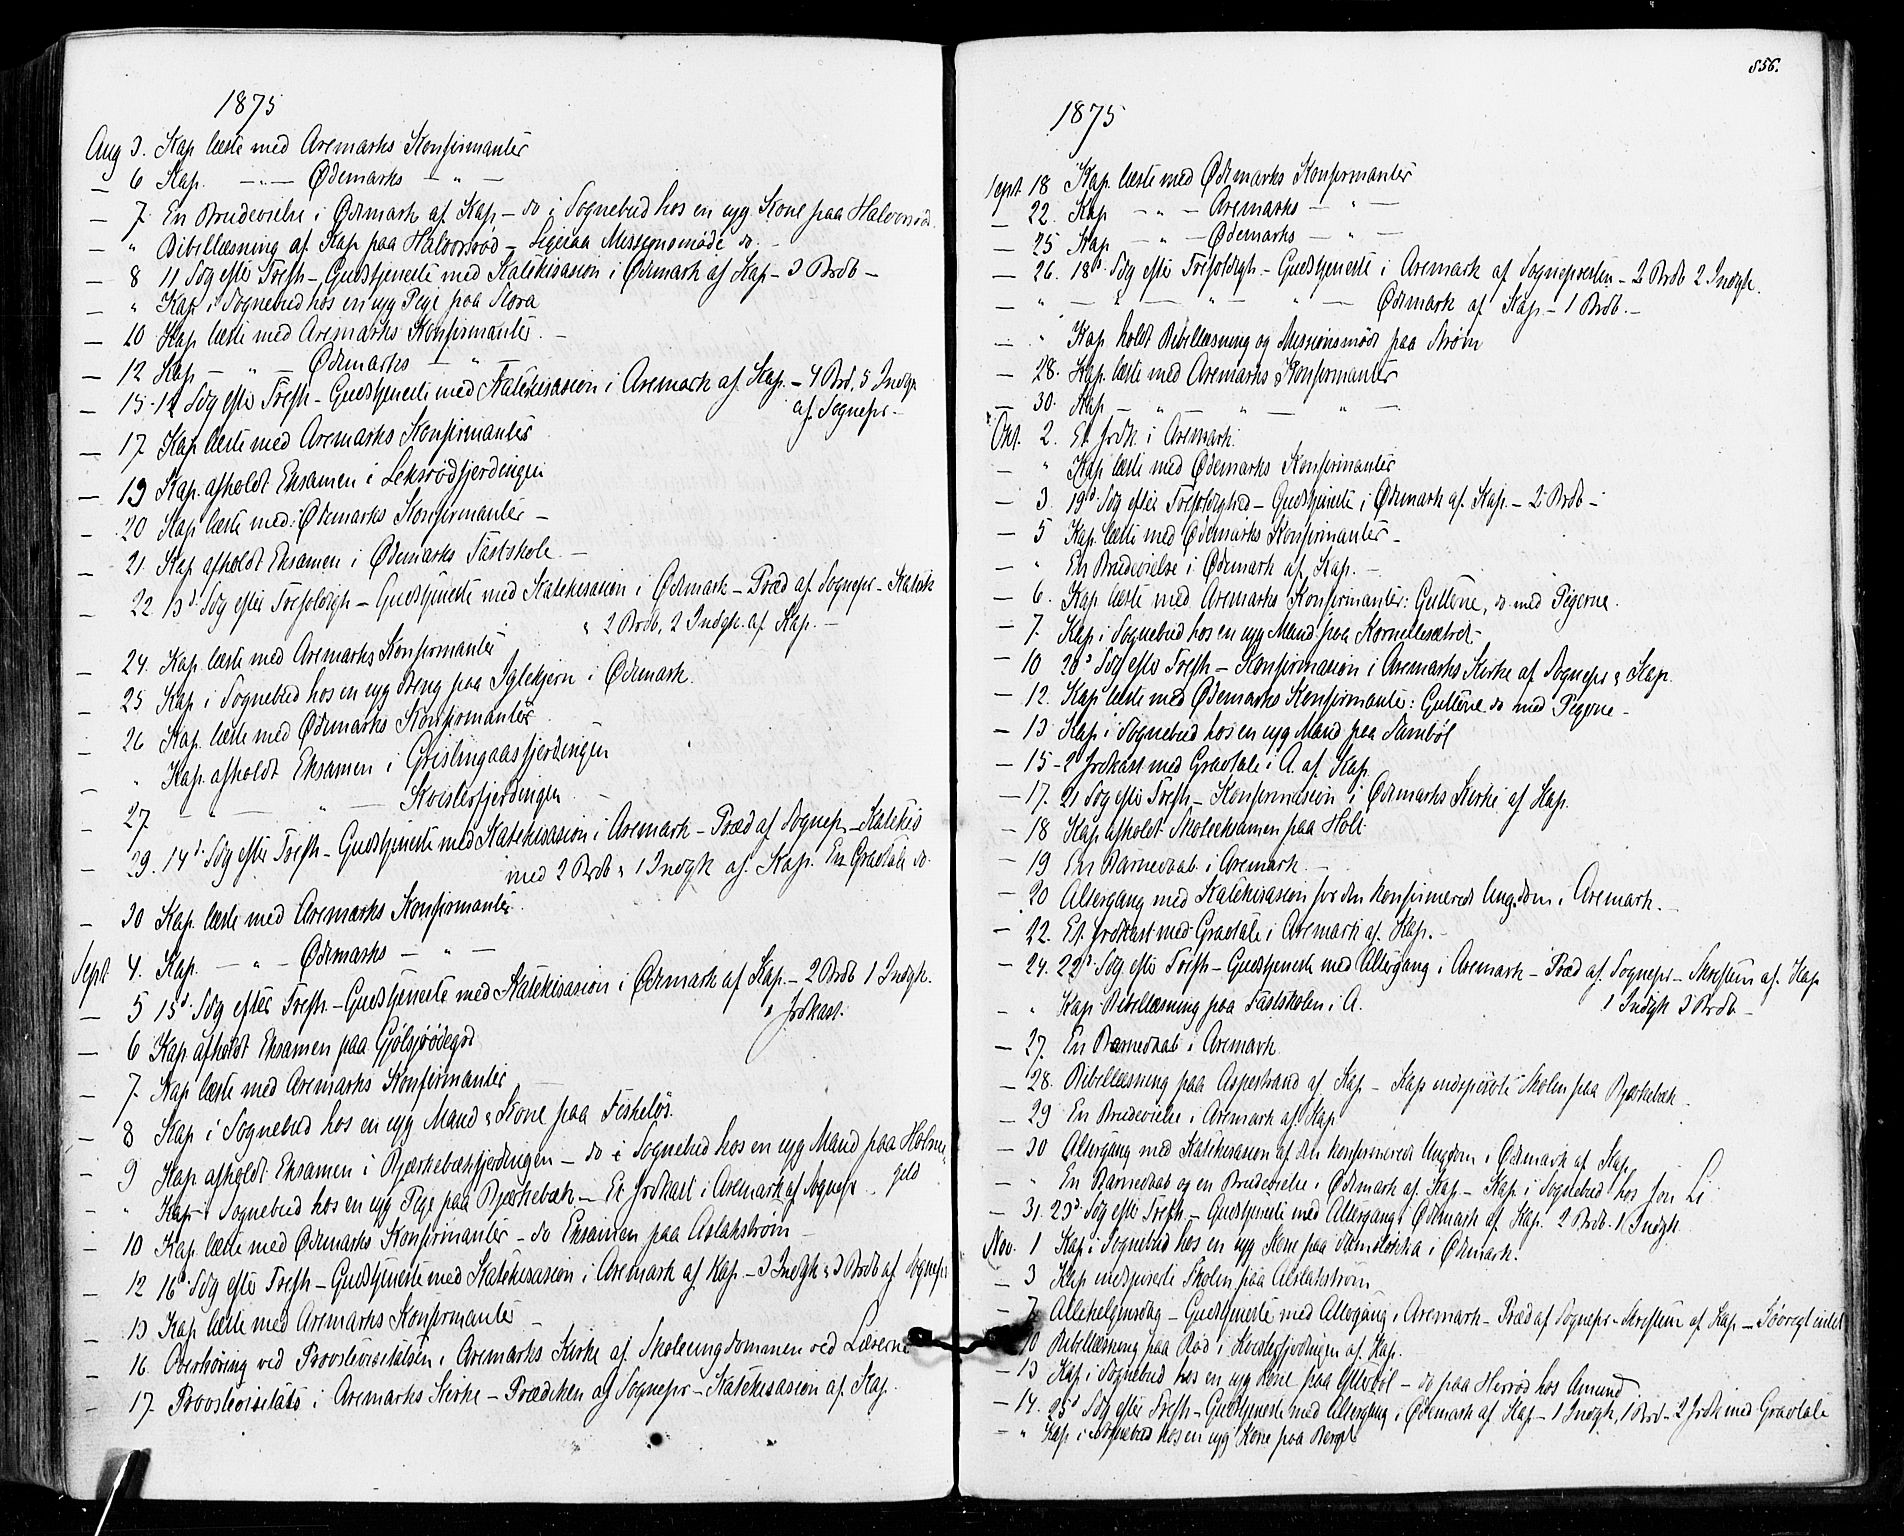 1875
Aug 3. Kap læste med Aremarks Konfirmanter
— 6 Kap. — „ — Ødemarks — „ —
— 7. En Brudevielse i Ødemark af Kap — do i Sognebud hos en syg Kone paa Halvorsrød.
— „ Bibellæsning af Kap paa Halvorsrød — Ligesaa Missionsmøde do. —
— 8 11 Søg efter Trefh — Gudstjeneste med Katekisasion i Ødemark af Kap — 3 Brdb —
— „ Kap i Sognebud hos en syg Pige paa Flora
— 10 Kap læste med Aremarks Konfirmanter. —
— 12 Kap — „ — Ødemarks — „
— 15 12 Søg efter Trefh — Gudstjeneste med Katekisasion i Aremark af Kap. — 4 Brd. 5 Indgk
af Sognepr —
— 17. Kap læste med Aremarks Konfirmanter
— 19 Kap. afholdt Eksamen i Leksrødfjerdingen
— 20 Kap læste med Ødemarks Konfirmanter —
— 21. Kap afholdt Eksamen i Ødemarks Fastskole —
— 22 13d. Søg efter Trefoldigh — Gudstjeneste med Katekisasion i Ødemark — Præd af Sognepr — Katek
„ 2 Brdb, 2 Indgk. af Kap. —
— 24. Kap. læste med Aremarks Konfirmanter
— 25. Kap i Sognebud hos en syg Dreng paa Iglekjern i Ødemark.
— 26 Kap. læste med Ødemarks Konfirmanter
— „ Kap. afholdt Eksamen i Grislingaasfjerdingen
— 27. — „ — Kvislerfjerdingen —
— 29. 14d. Søg efter Trefh — Gudstjeneste med Katekisasion i Aremark — Præd af Sognepr — Katekis
med 2 Brdb & 1 Indgk af Kap. En Gravtale do.
— 30 Kap læste med Aremarks Konfirmanter.
Sept 4. Kap. — „ — Ødemarks — „ —
— 5 15d. Søg efter Trefh — Gudstjeneste med Katekisasion i Ødemark af Kap — 2 Brdb 1 Indgk.
& Jrdkast.
— 6 Kap afholdt Eksamen paa Gjølsjøødegrd
— 7. Kap læste med Aremarks Konfirmanter —
— 8 Kap i Sognebud hos en syg Mand & Kone paa Fiskeløs.
— 9 Kap afholdt Eksamen i Bjærkebækfjerdingen — do i Sognebud hos en syg Mand paa Holme-
gild
— „ Kap i Sognebud hos en syg Pige paa Bjærkebæk — Et Jrdkast i Aremark af Sognepr.
— 10 Kap læste med Ødemarks Konfirmanter — do Eksamen paa Aslakstrøm —
— 12 16d. Søg efter Trefh — Gudstjeneste med Katekisasion i Aremark af Kap — 3 Indgk & 3 Brdb af Sognepr
— 13 Kap læste med Aremarks Konfirmanter —
— 16. Overhøring ved Provstevisitatsen i Aremarks Kirke af Skoleungdommen ved Lærerne
— 17. Provstevisitats i Aremarks Kirke — Prædiken af Sognepr — Katekisasion af Kap.
856.
1875
Sept 18 Kap. læste med Ødemarks Konfirmanter
— 22. Kap — „ — Aremarks — „ —
— 25 Kap — „ — Ødemarks — „ —
— 26. 18d. Søg efter Trefoldigh — Gudstjeneste i Aremark af Sognepresten — 2 Brdb 2 Indgk.
— „ — „ — „ — „ — Ødemark af Kap — 1 Brdb. —
— „ Kap holdt Bibellæsning og Missionsmøde paa Strøm
— 28. Kap læste med Aremarks Konfirmanter
— 30. Kap — „ — „ — „ —
Okt. 2. Et Jrdk. i Aremark.
— „ Kap læste med Ødemarks Konfirmanter
— 3. 19d. Søg efter Trefoldighed — Gudstjeneste i Ødemark af Kap — 2 Brdb —
— 5 Kap læste med Ødemarks Konfirmanter —
— „ En Brudevielse i Ødemark af Kap. —
— 6. Kap læste med Aremarks Konfirmanter: Guttene, do med Pigerne.
— 7. Kap i Sognebud hos en syg Mand paa Kornellesætret —
— 10 20d Søg efter Trefh — Konfirmasion i Aremarks Kirke af Sognepr & Kap.
— 12. Kap læste med Ødemarks Konfirmanter: Guttene do med Pigerne —
— 13 Kap i Sognebud hos en syg Mand paa Stumbøl
— 15 — 2 Jrdkast med Gravtale i A. af Kap
— 17. 21 Søg efter Trefh — Konfirmasion i Ødemarks Kirke af Kap.
— 18 Kap afholdt Skoleeksamen paa Holt
— 19 En Barnedaab i Aremark. —
— 20 Altergang med Katekisasion for den konfirmerede Ungdom i Aremark. —
— 22. Et Jrdkast med Gravtale i Aremark af Kap. —
— 24. 22d. Søg efter Trefh — Gudstjeneste med Altergang i Aremark — Præd af Sognepr — Skriftem af Kap
1 Indgk 3 Brdb —
— „ Kap Bibellæsning paa Fastskolen i A.
— 27. En Barnedaab i Aremark
— 28. Bibellæsning paa Aspestrand af Kap — Kap inspiserte Skolen paa Bjærkebæk —
— 29 En Brudevielse i Aremark af Kap
— 30 Altergang med Katekisasion af den konfirmerede Ungdom i Ødemark af Kap
— „ En Barnedaab og en Brudevielse i Ødemark af Kap — Kap i Sognebud hos Jon Li
— 31. 23d. Søg efter Trefh — Gudstjeneste med Altergang i Ødemark af Kap. 2 Brdb. 1 Indgk.
Nov. 1 Kap i Sognebud hos en syg Kone paa i Ødemark.
— 3 Kap inspiserte Skolen paa Aslakstrøm
— 7 Allehelgensdag — Gudstjeneste med Altergang i Aremark — Præd af Sognepr — Skriftem af Kap —
— 10 Bibellæsning paa Rød i Kvislerfjerdingen af Kap. —
— 13 Kap i Sognebud hos en syg Kone paa — do paa Herrød hos Amund
— 14. 25d Søg efter Trefh — Gudstjeneste med Altergang i Ødemark af Kap — 1 Indgk, 1 Brd — 2 Jrdk med Gravtale
— „ Kap i Sognebud hos en syg Kone paa Berget